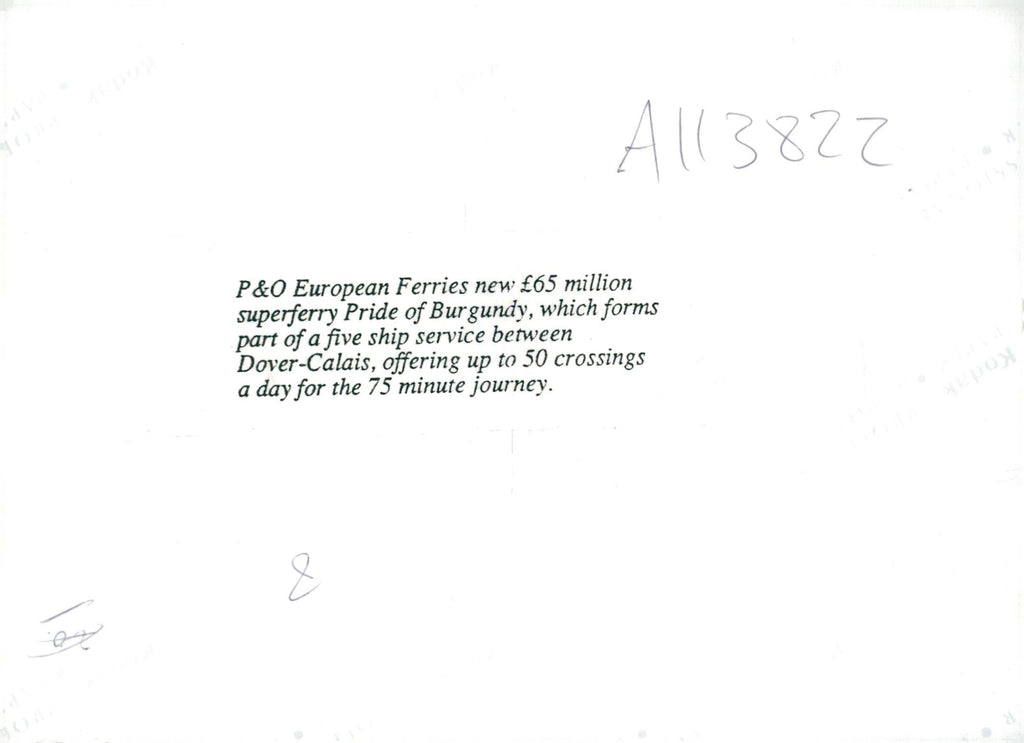 A113822
P&O European Ferries new £65 million
superferry Pride of Burgundy, which forms
part of a five ship service between
Dover-Calais, offering up to 50 crossings
a day for the 75 minute journey.
8
Kodak